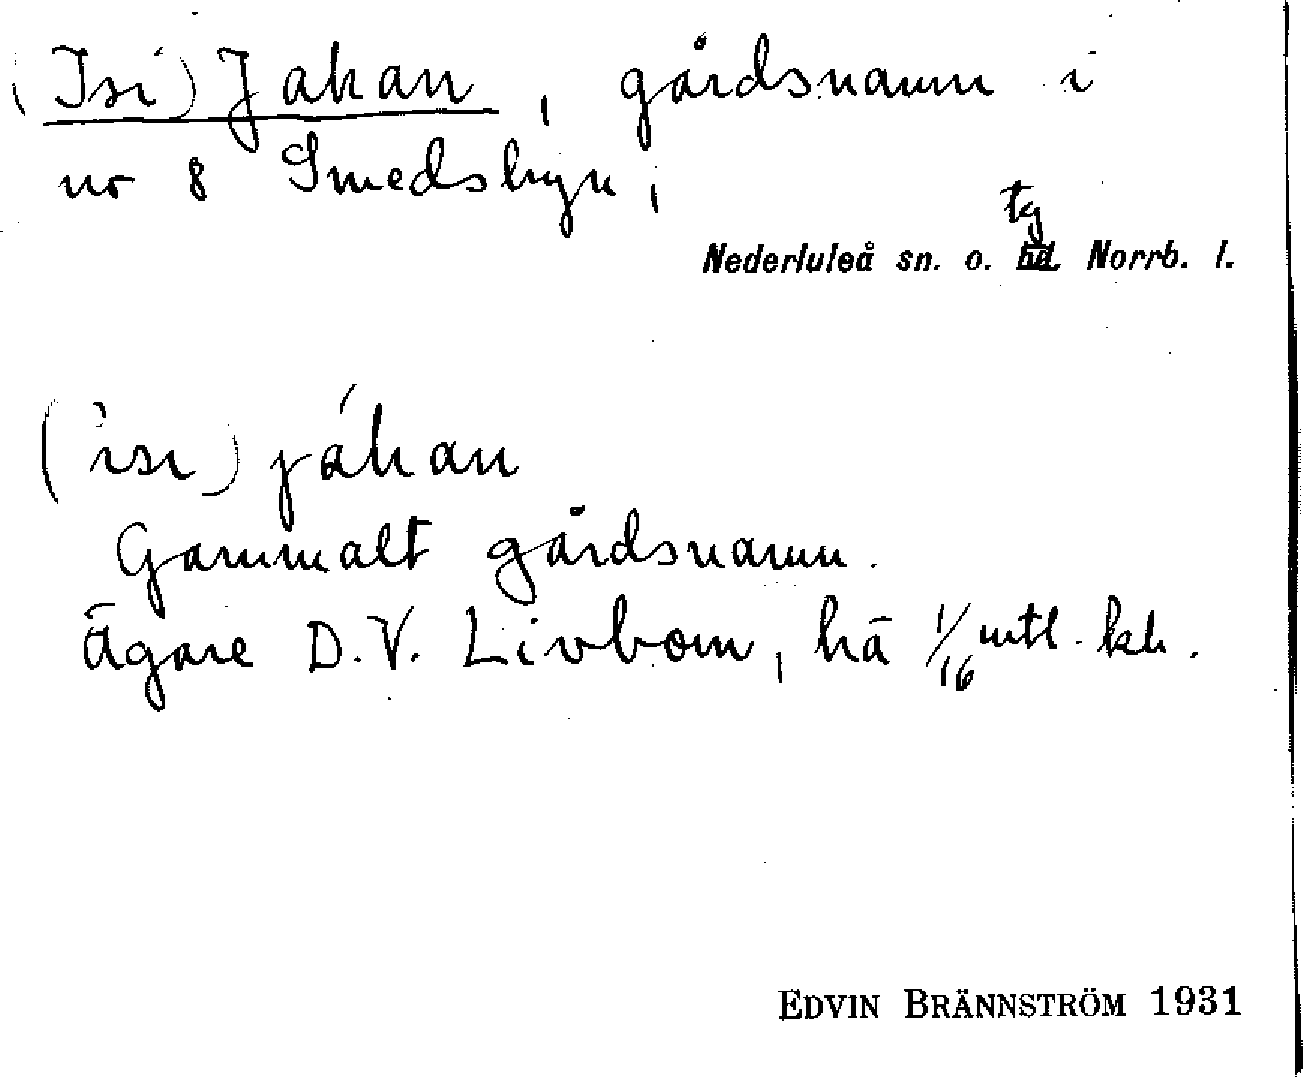 (Isi) Jakan, gårdsnamn i
nr 8 Smedsbyn,
tg
Nederluleå sn. o. hd. Norrb. l.
(ìsi) jákan
Gammalt gårdsnamn.
Ägare D. V. Livbom, hā 1/16 mtl. kh.
EDVIN BRÄNNSTRÖM 1931